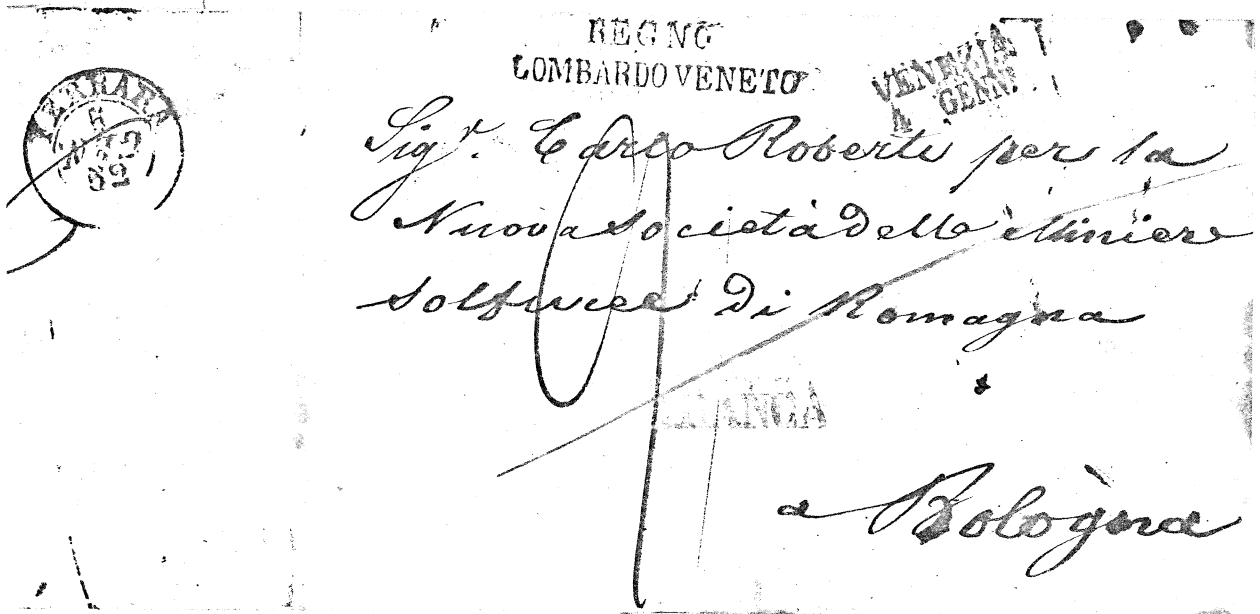 REGNO
LOMBARDO VENETO
VENEZIA
4 GENN.
FERRARA
Sigr. Carlo Roberti per la
Nuova società delle Miniere
solfuree di Romagna
a Bologna